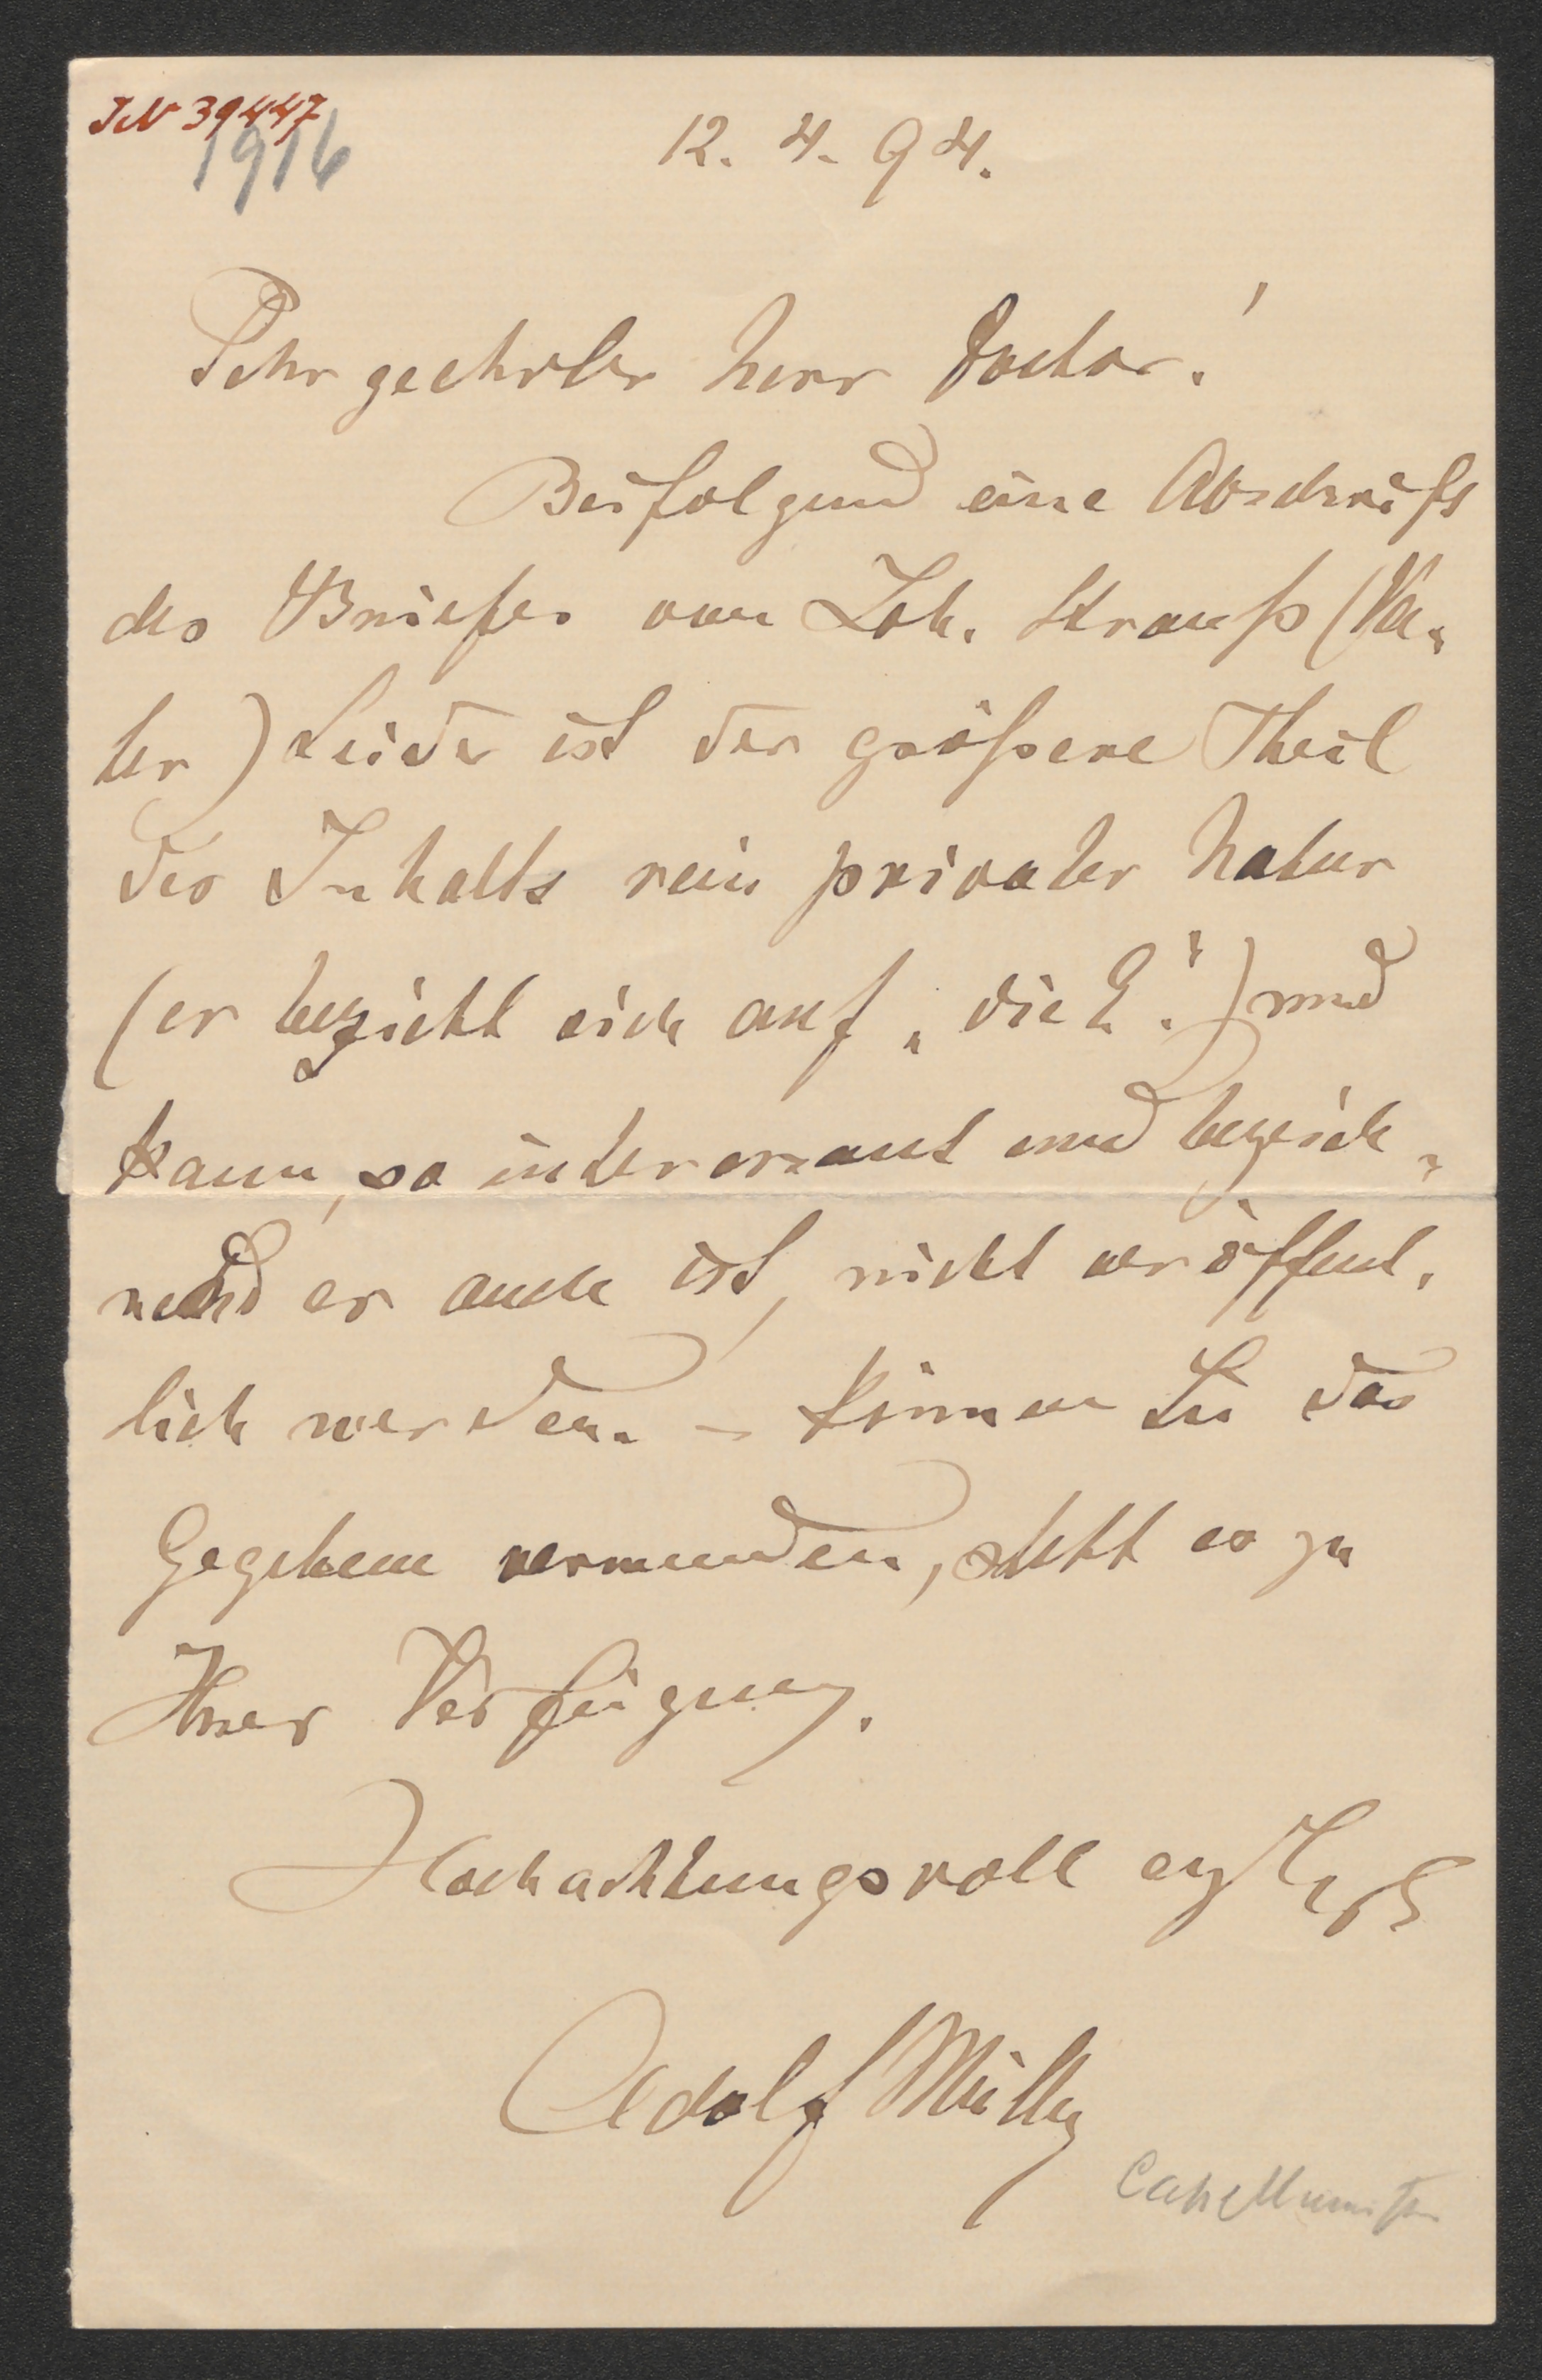 IN 39447
1916
12. 4. 94.
Sehr geehrter Herr Doctor!
Beifolgend eine Abschrift
des Briefes von Joh. Strauß (Va-
ter) Leider ist der größere Theil
des Inhalts rein privater Natur
(er bezieht sich auf „die E.") und
kann, so interessant und bezeich-
nend er auch ist, nicht veröffent-
lich werden. – Können Sie das
Gegebene verwenden, steht es zu
Ihrer Verfügung.
Hochachtungsvoll
Adolf Müller
Capellmeister